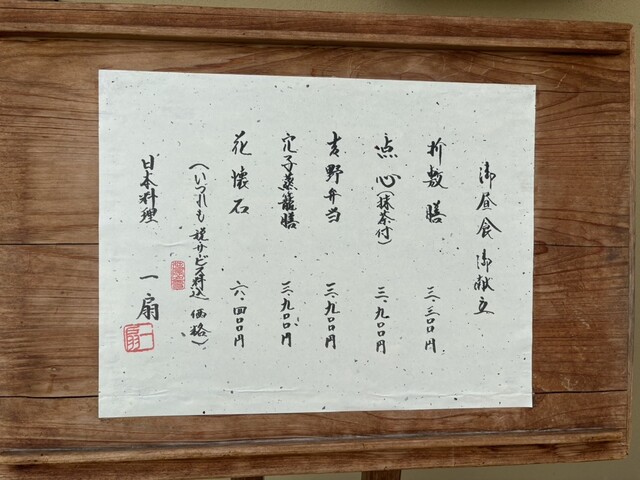 御昼食 御献立
折敷膳 三、三〇〇円
点心(抹茶付) 三、九〇〇円
吉野弁当 三、九〇〇円
穴子蒸籠膳 三、九〇〇円
花懐石 六、四〇〇円
(いづれも 税サービス料込 価格)
日本料理 一扇
一扇